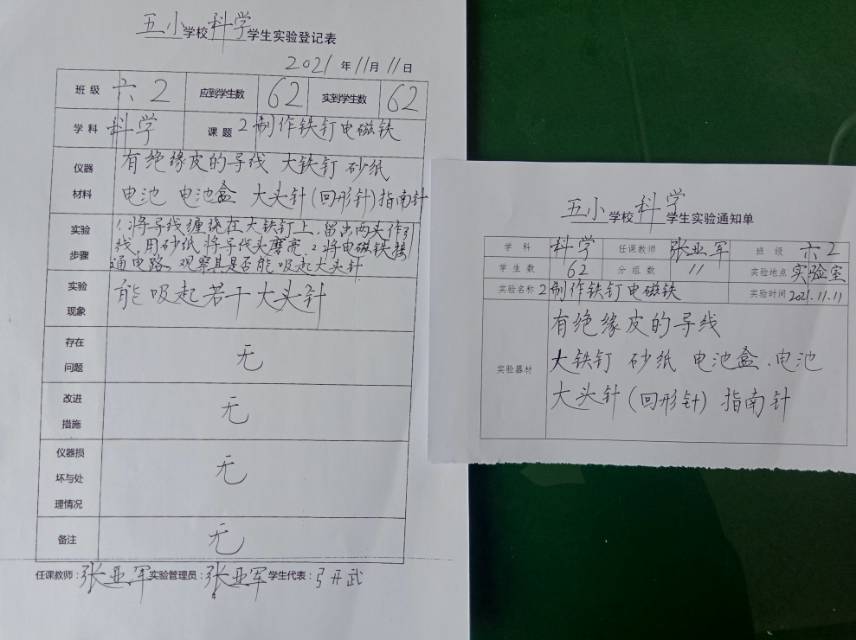 五小学校科学学生实验登记表
2021年11月11日
班级 六2 应到学生数 62 实到学生数 62
学科 科学 课题 2制作铁钉电磁铁
仪器材料 有绝缘皮的导线 大铁钉 砂纸
电池 电池盒 大头针(回形针)指南针
实验步骤 1.将导线缠绕在大铁钉上,留出两头作引
线,用砂纸将导线头磨亮.2将电磁铁接
通电路,观察其是否能吸起大头针
实验现象 能吸起若干大头针
存在问题 无
改进措施 无
仪器损坏与处理情况 无
备注 无
任课教师:张亚军实验管理员:张亚军学生代表:
五小学校科学学生实验通知单
学科 科学 任课教师 张亚军 班级 六2
学生数 62 分组数 11 实验地点 实验室
实验名称 2制作铁钉电磁铁 实验时间 2021.11.11
实验器材 有绝缘皮的导线
大铁钉 砂纸 电池盒、电池
大头针(回形针) 指南针